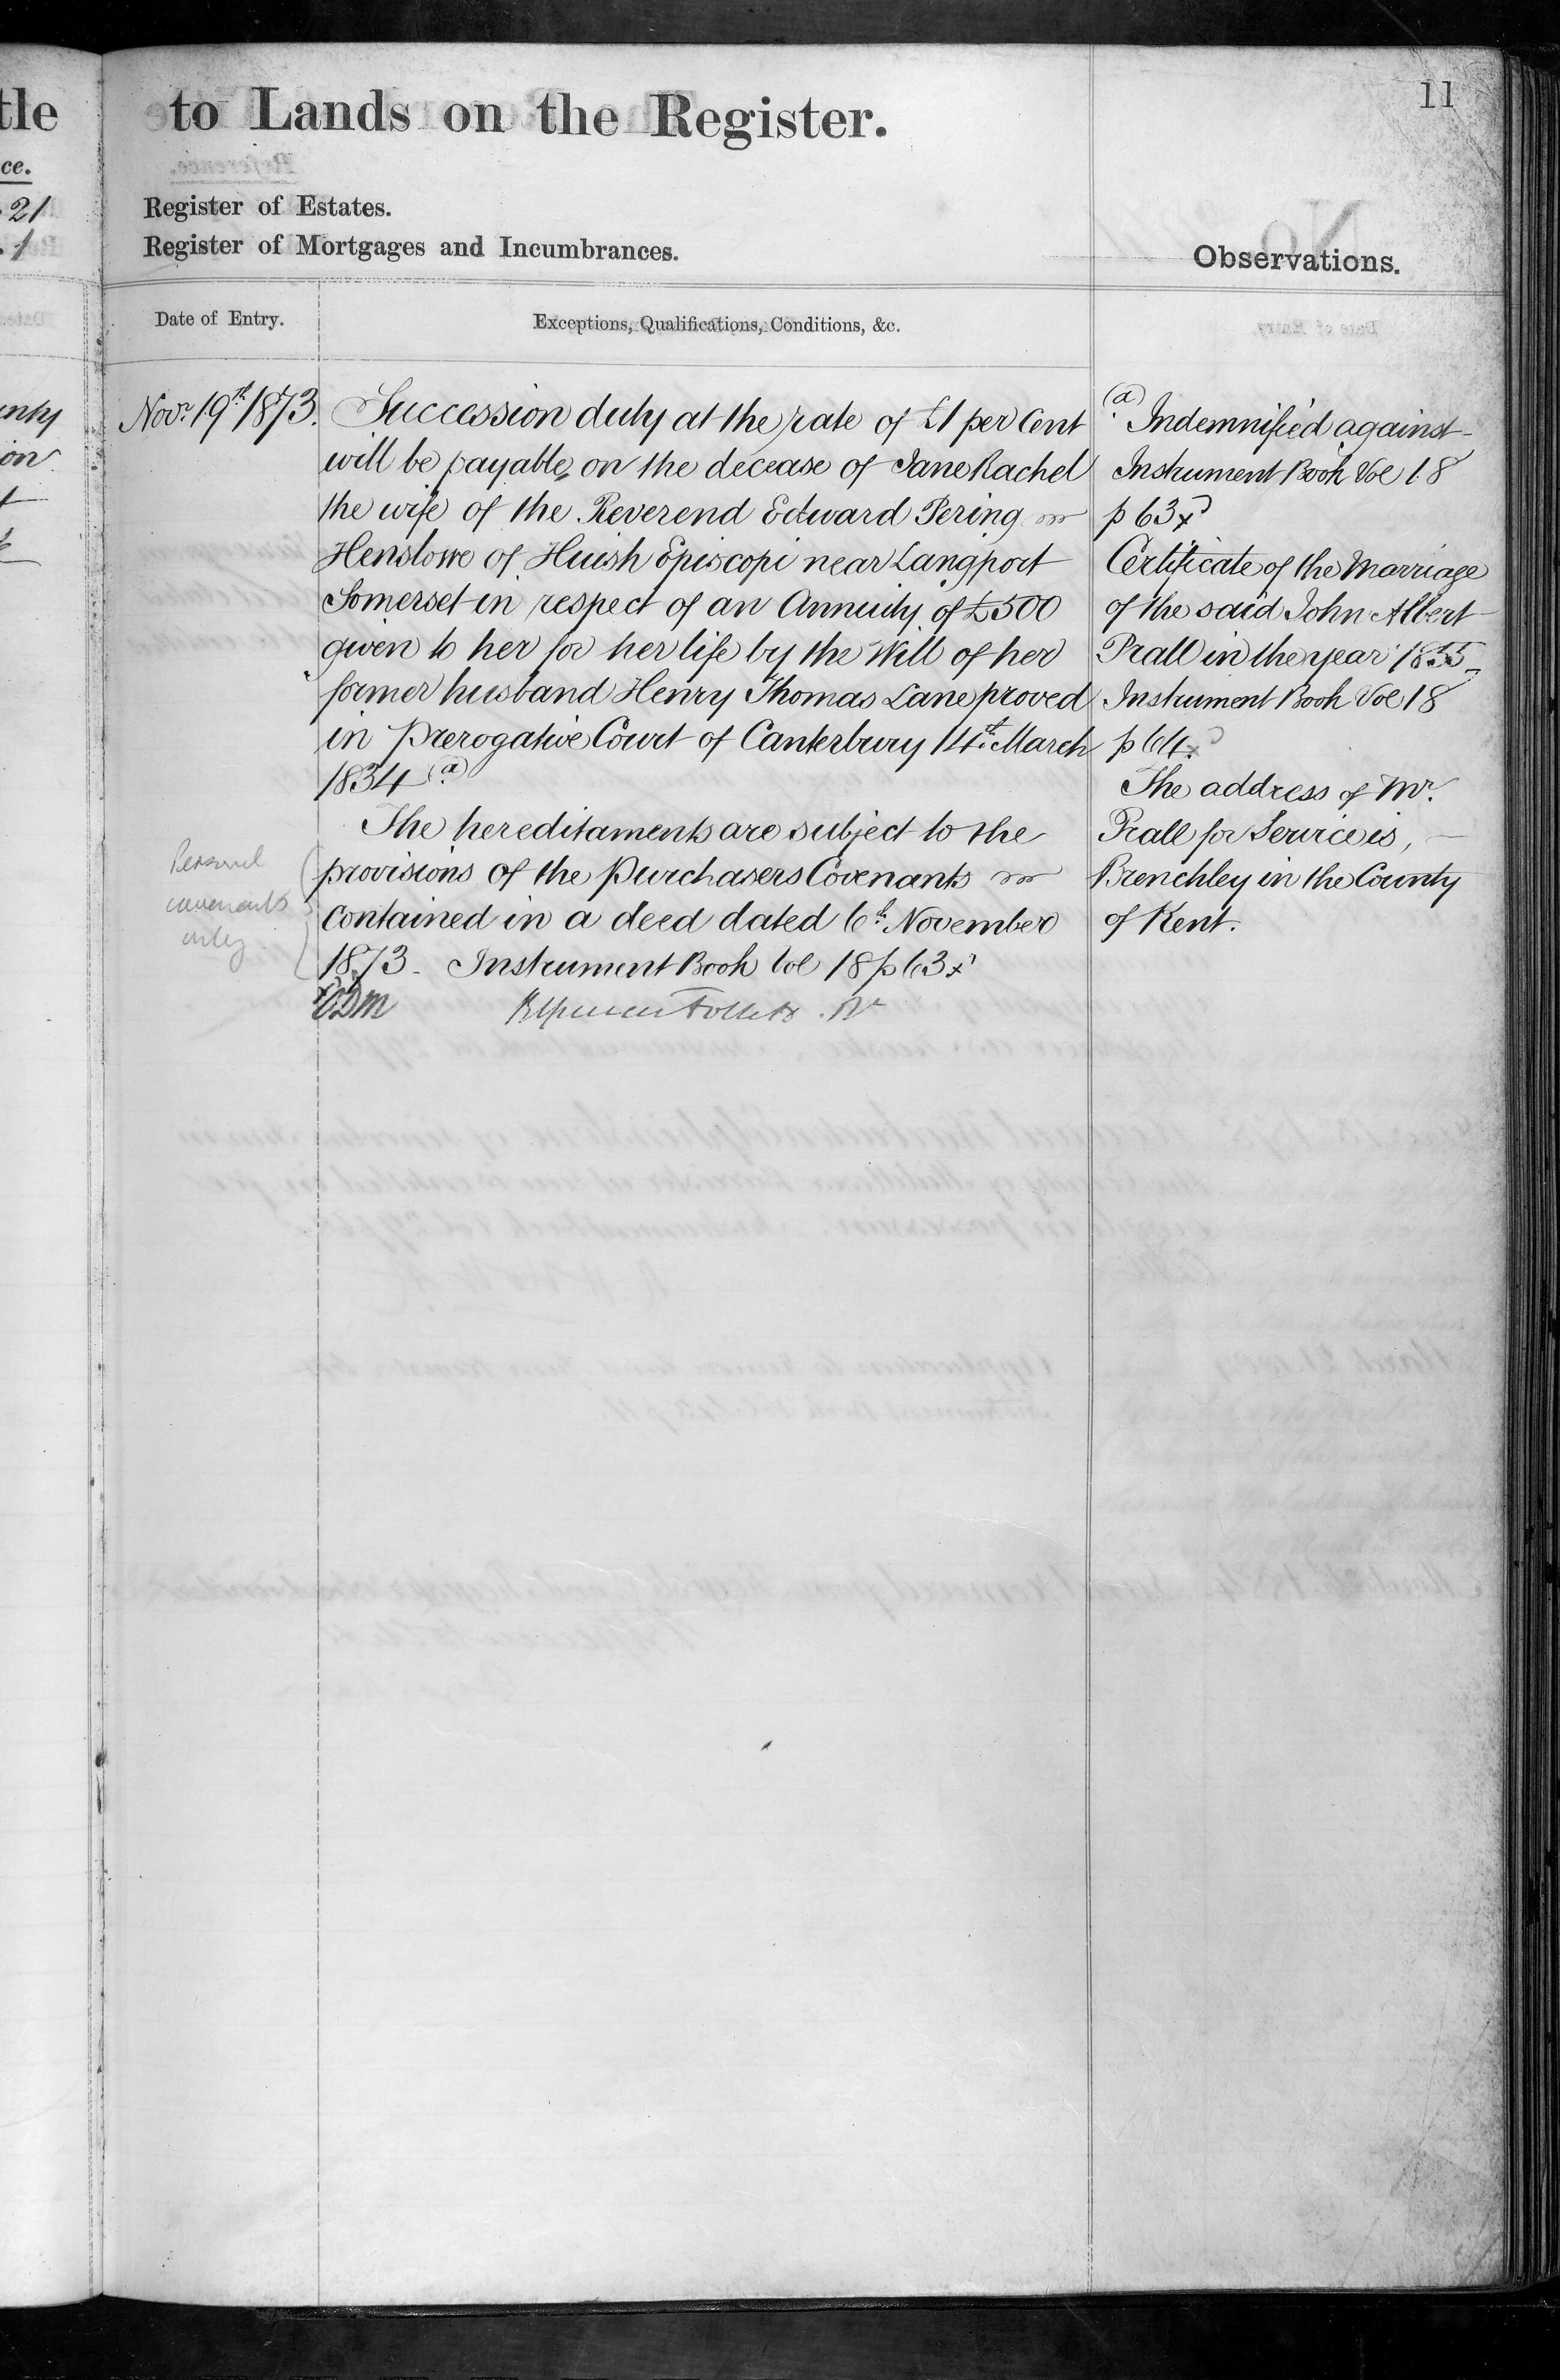 tle
ce.
21
1
to Lands on the Register.
11
Register of Estates.
Register of Mortgages and Incumbrances.
Observations.
Date of Entry.
Exceptions, Qualifications, Conditions, &c.
Novr 19th 1873.
Succession duty at the rate of £1 per Cent
will be payable on the decease of Jane Rachel
the wife of the Reverend Edward Pering
Henslowe of Huish Episcopi near Langport
Somerset in respect of an Annuity of £500
given to her for her life by the Will of her
former husband Henry Thomas Lane proved
in Prerogative Court of Canterbury 14th March
1834 (a)
The hereditaments are subject to the
provisions of the Purchasers Covenants
contained in a deed dated 6th November
1873 - Instrument Book Vol 18 p 63 x
Personal
covenants
only
(a) Indemnified against -
Instrument Book Vol 18
p 63 x
Certificate of the Marriage
of the said John Albert
Prall in the year 1855 -
Instrument Book Vol 18
p 64 x
The address of Mr.
Prall for Service is, -
Brenchley in the County
of Kent.